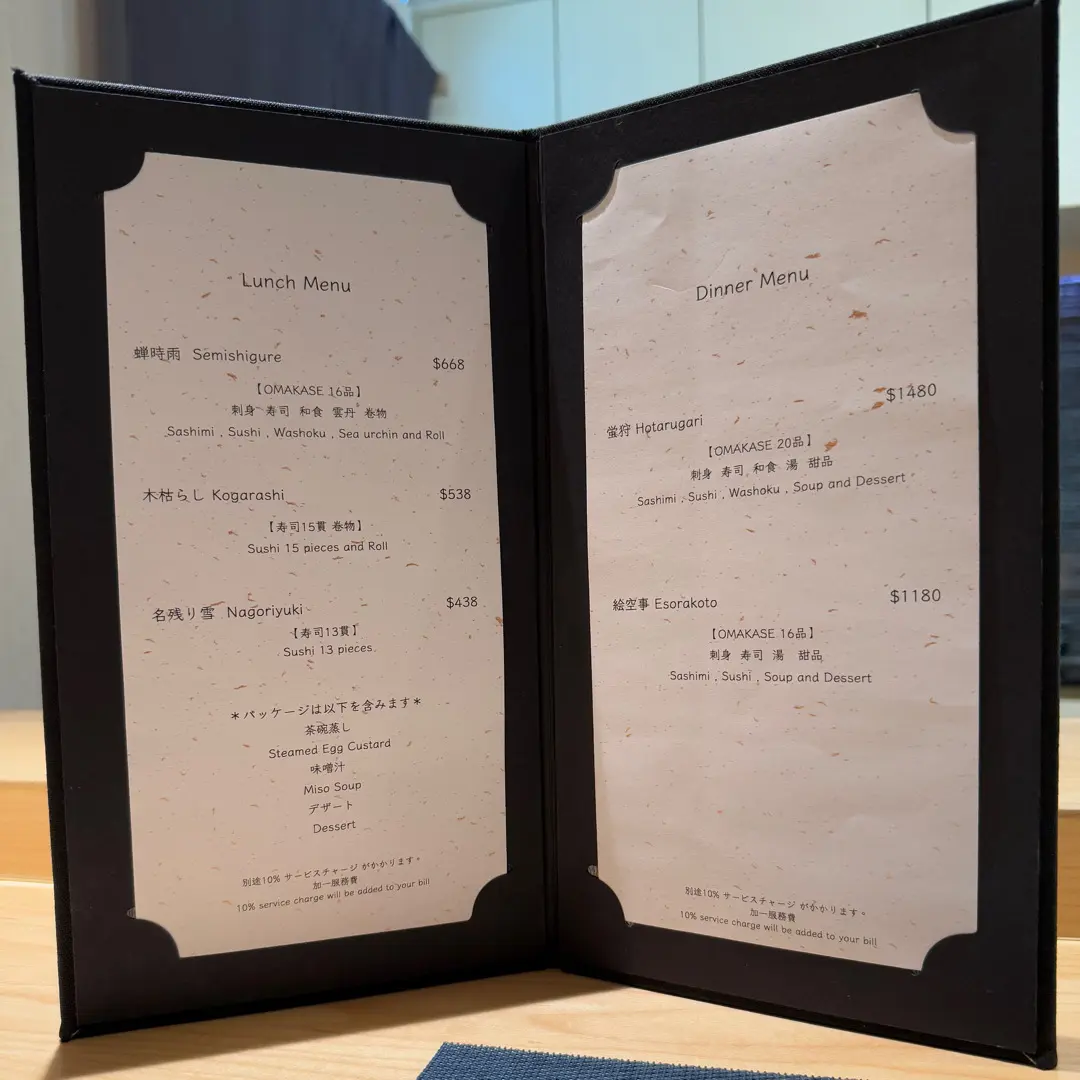 Lunch Menu
蝉時雨 Semishigure
$668
【OMAKASE 16品】
刺身 寿司 和食 雲丹 巻物
Sashimi , Sushi , Washoku , Sea urchin and Roll
木枯らし Kogarashi
$538
【寿司15貫 巻物】
Sushi 15 pieces and Roll
名残り雪 Nagoriyuki
$438
【寿司13貫】
Sushi 13 pieces
*パッケージは以下を含みます*
茶碗蒸し
Steamed Egg Custard
味噌汁
Miso Soup
デザート
Dessert
別途10% サービスチャージ がかかります。
加一服務費
10% service charge will be added to your bill
Dinner Menu
$1480
蛍狩 Hotarugari
【OMAKASE 20品】
刺身 寿司 和食 湯 甜品
Sashimi , Sushi , Washoku , Soup and Dessert
絵空事 Esorakoto
$1180
【OMAKASE 16品】
刺身 寿司 湯 甜品
Sashimi , Sushi , Soup and Dessert
別途10% サービスチャージ がかかります。
加一服務費
10% service charge will be added to your bill